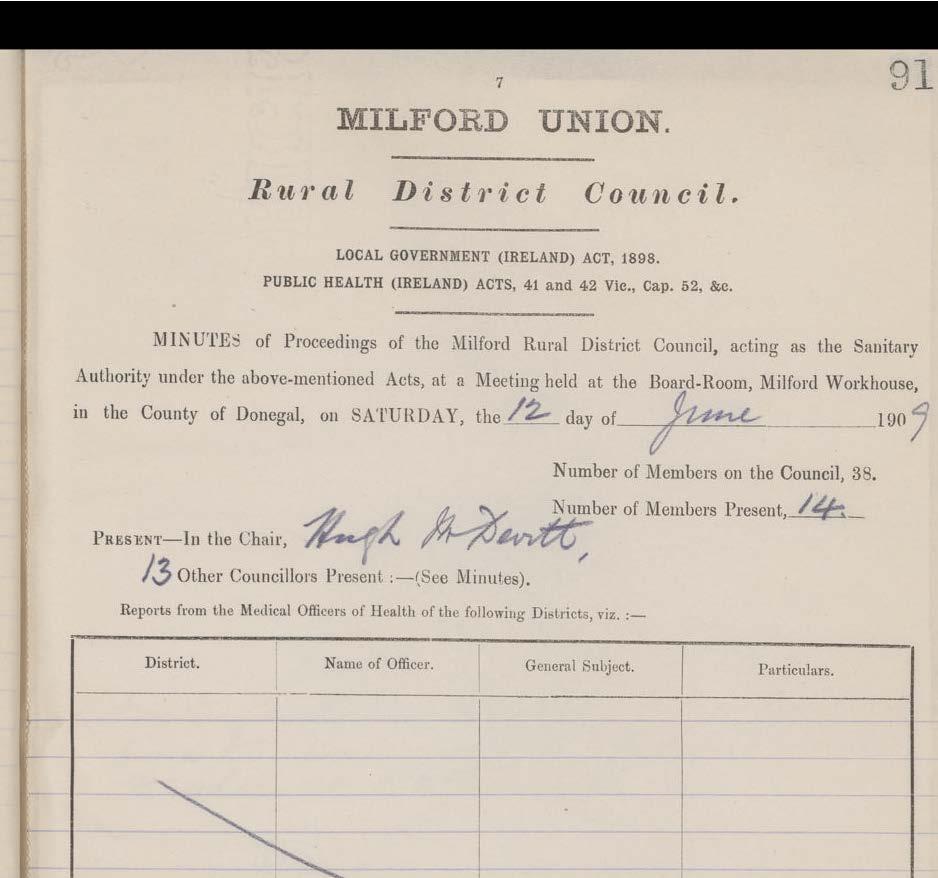 91
7
MILFORD UNION.
Rural District Council.
LOCAL GOVERNMENT (IRELAND) ACT, 1898.
PUBLIC HEALTH (IRELAND) ACTS, 41 and 42 Vic., Cap. 52, &c.
MINUTES of Proceedings of the Milford Rural District Council, acting as the Sanitary
Authority under the above-mentioned Acts, at a Meeting held at the Board-Room, Milford Workhouse,
in the County of Donegal, on SATURDAY, the 12 day of June 1909
Number of Members on the Council, 38.
Number of Members Present, 14.
PRESENT—In the Chair, Hugh McDevitt,
13 Other Councillors Present :—(See Minutes).
Reports from the Medical Officers of Health of the following Districts, viz. :—
District. Name of Officer. General Subject. Particulars.